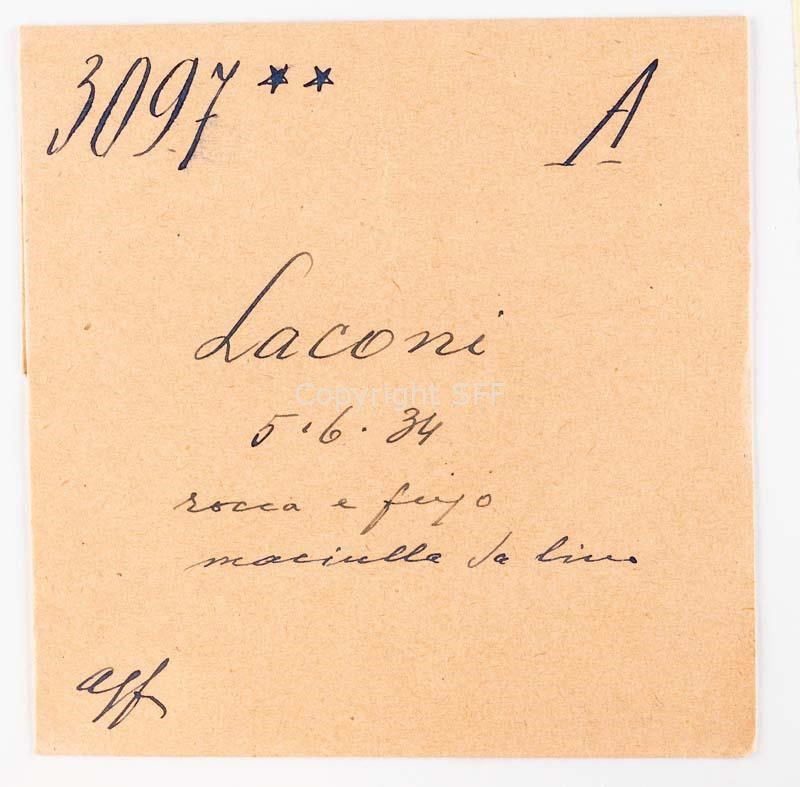 3097** A
Laconi
Copyright SFF
5.6.34
rocca e fuso
maciulla da lino